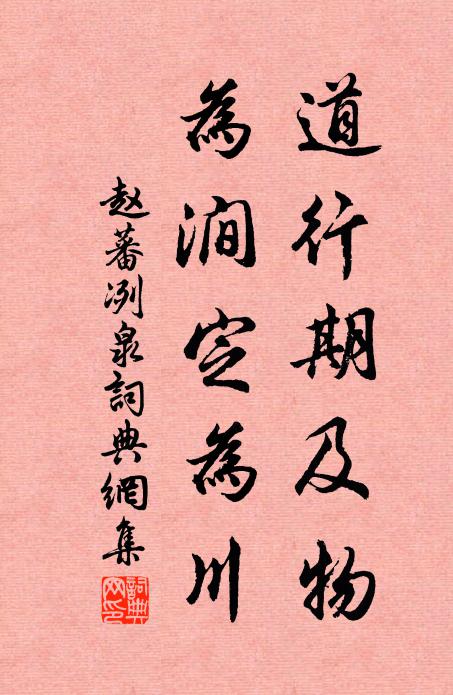 道行期及物
為澗定為川
赵蕃冽泉詞典網集
詞典网印